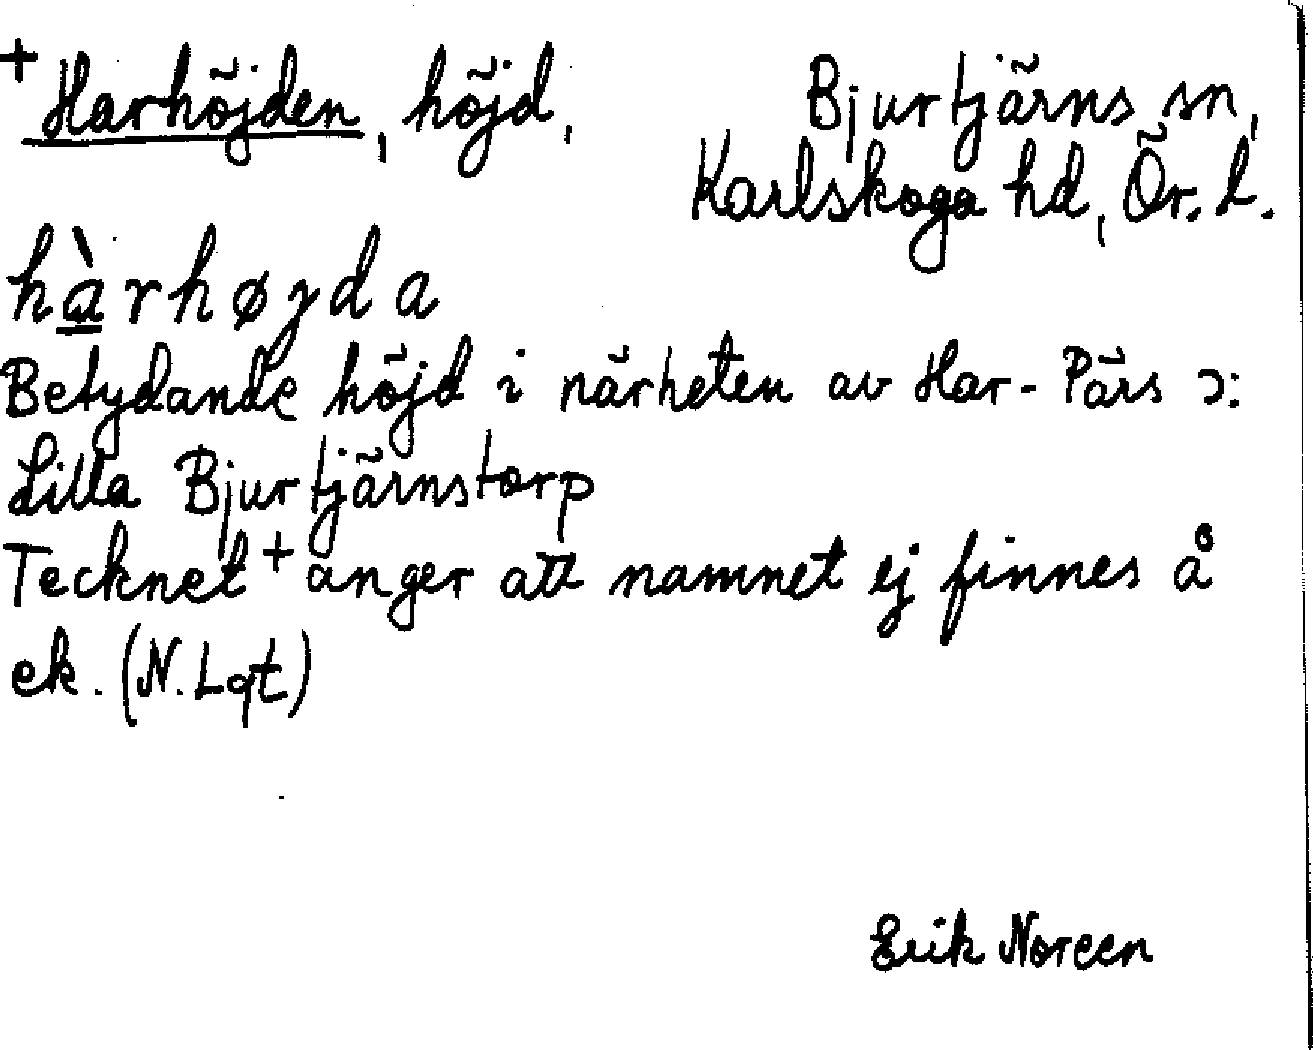 + Harhöjden, höjd,
Bjurtjärns sn,
Karlskoga hd, Ör. L.
hàrhøjda
Betydande höjd i närheten av Har-Pärs ɔ:
Lilla Bjurtjärnstorp
Tecknet + anger att namnet ej finnes å
ek. (N. Lqt)
Erik Noreen